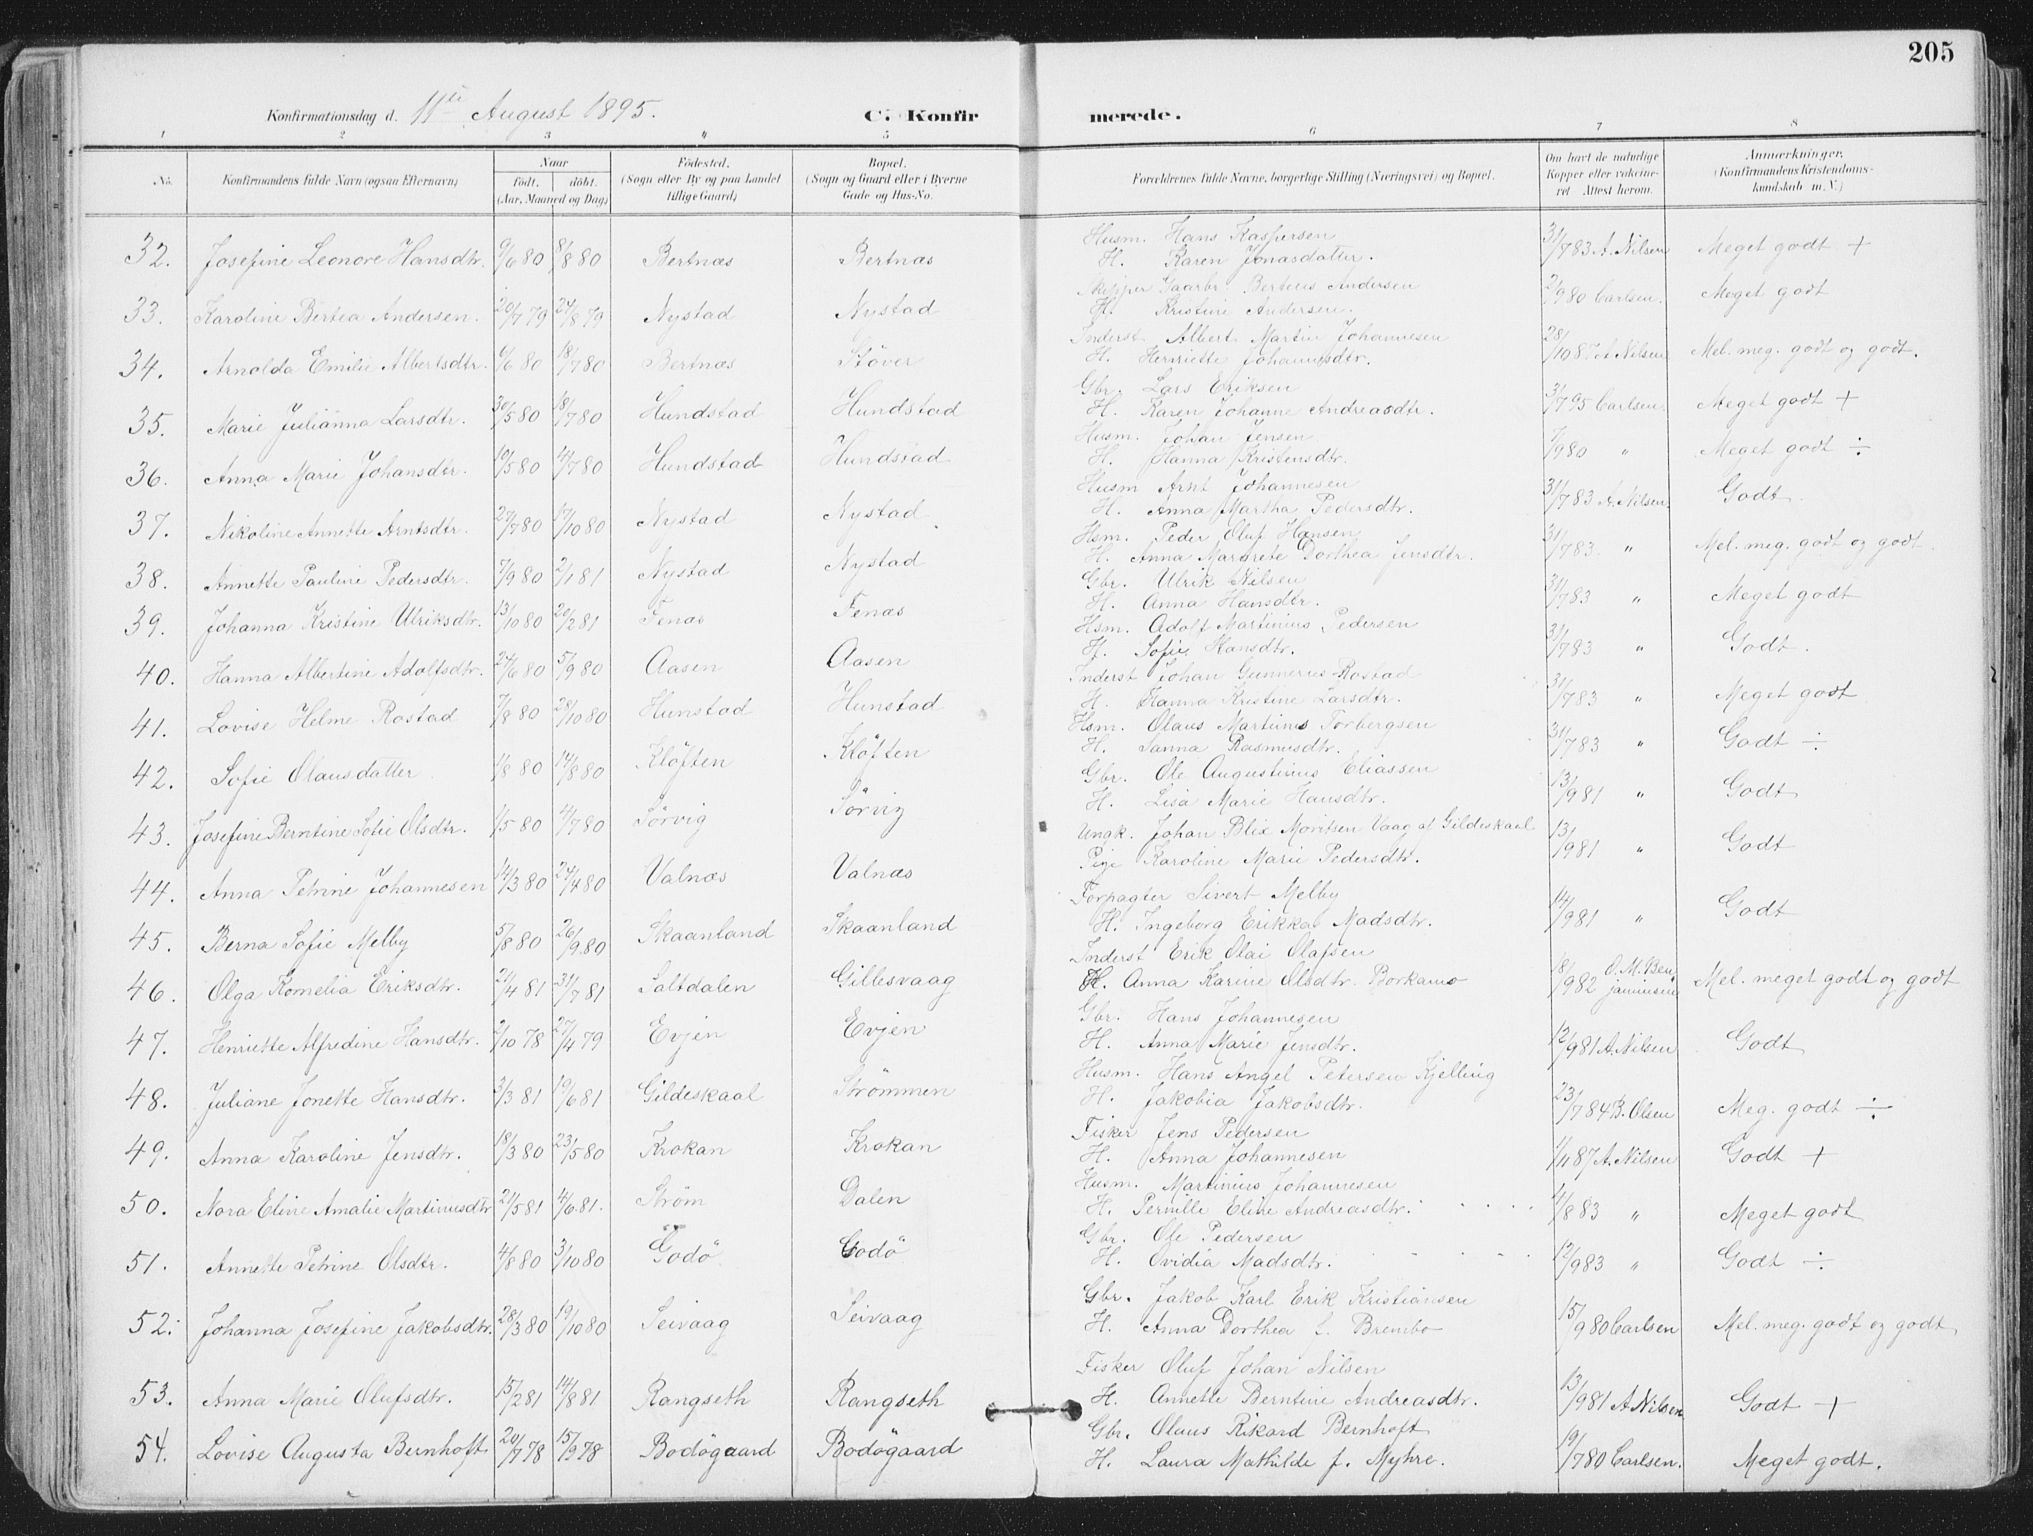 205
Konfirmationsdag d. 11te August 1895. C. Konfirmerede.
1 2 3 " 5 6 7 8
No. Konfirmandens fulde Navn (ogsaa Efternavn) Naar født. døbt. (Aar, Maaned og Dag) Fødested. (Sogn eller By og paa Landet tillige Gaard) Bopæl. (Sogn og Gaard eller i Byerne Gade og Hus-No. Forældrenes fulde Navne, borgerlige Stilling (Næringsvei) og Bopæl. Om havt de naturlige Kopper eller vakcineret Attest herom. Anmærkninger. (Konfirmandens Kristendomskundskab m. V.)
32. Josefine Leonore Hansdtr. 9/6 80 8/8 80 Bertnæs Bertnæs Husm. Hans Kaspersen 31/7 83 A. Nilsen Meget godt +
H. Karen Jonasdatter.
33. Karoline Bertea Andersen. 20/7 79 24/8 79 Nystad Nystad Skipper Gaarbr. Berteus Andersen 2/9 80 Carlsen. Meget godt
H. Kristine Andersen.
34. Arnolda Emilie Albertsdtr. 6/6 80 18/7 80 Bertnæs Støver Inderst Albert Martin Johannesen 28/10 87 A. Nilsen Mel. meg. godt og godt.
H. Henriette Johannesdtr.
35. Marie Julianna Larsdtr. 30/5 80 18/7 80 Hundstad Hundstad Gbr. Lars Eriksen 3/7 95 Carlsen. Meget godt +
H. Karen Johanne Andreasdtr.
36. Anna Marie Johansdtr. 10/5 80 4/7 80 Hundstad Hundstad Husm. Johan Jensen 7/9 80 " Meget godt ÷
H. Hanna Kristensdtr.
37. Nikoline Annette Arntsdtr. 27/7 80 17/10 80 Nystad Nystad Husm Arnt Johannesen 31/7 83 A. Nilsen Godt.
H. Anna Martha Pedersdtr.
38. Annette Pauline Pedersdtr. 7/9 80 2/1 81 Nystad Nystad Hsm. Peder Oluf Hansen 31/7 83 " Mel. meg. godt og godt.
H. Anna Margrete Dorthea Jensdtr.
39. Johanna Kristine Ulriksdtr. 13/10 80 20/2 81 Fenæs Fenæs Gbr. Ulrik Nilsen 31/7 83 " Meget godt
H. Anna Hansdtr.
40. Hanna Albertine Adolfsdtr. 24/6 80 5/9 80 Aasen Aasen Hsm. Adolf Martinius Pedersen 31/7 83 " Godt.
H. Sofie Hansdtr.
41. Lovise Helme Rostad 7/8 80 28/10 80 Hunstad Hunstad Inderst Johan Gunnerius Rostad 31/7 83 " Meget godt
H. Hanna Kristine Larsdtr.
42. Sofie Olausdatter 1/8 80 14/8 80 Kløften Kløften Hsm. Olaus Martinus Torbergsen 31/7 83 " Godt ÷
H. Sanna Rasmusdtr.
43. Josefine Berntine Sofie Olsdtr. 1/5 80 4/7 80 Sørvig Sørvig Gbr. Ole Augustinus Eliassen 13/9 81 " Godt
H. Lisa Marie Hansdtr.
44. Anna Petrine Johannesen 14/3 80 24/4 80 Valnæs Valnæs Ungk. Johan Blix Moritsen Vaag af Gildeskaal 13/9 81 " Godt
Pige Karoline Marie Pedersdtr.
45. Berna Sofie Melby 5/8 80 26/9 80 Skaanland Skaanland Forpagter Sivert Melby 14/9 81 " Godt
H. Ingeborg Erikka Madsdtr.
46. Olga Kornelia Eriksdtr. 21/4 81 31/7 81 Saltdalen Gillesvaag Inderst Erik Olai Olafsen 18/9 82 O. M. Benjaminsen Mel. meget godt og godt
H. Anna Karine Olsdtr. Borkamo
47. Henriette Alfredine Hansdtr. 2/10 78 27/4 79 Evjen Evjen Gbr. Hans Johannesen 12/9 81 A. Nilsen Godt
H. Anna Marie Jensdtr.
48. Juliane Jonette Hansdtr. 3/3 81 19/6 81 Gildeskaal Strømmen Husm. Hans Angel Petersen Kjelling 23/7 84 B. Olsen Meg. godt ÷
H. Jakobia Jakobsdtr.
49. Anna Karoline Jensdtr. 18/3 80 23/5 80 Krokan Krokan Fisker Jens Pedersen 1/11 87 A. Nilsen Godt +
H. Anna Johannesen
50. Nora Eline Amalie Martinusdtr 21/5 81 4/6 81. Strøm Dalen Husm. Martinius Johannesen 4/8 83 " Meget godt
H. Pernille Eline Andreasdtr.
51. Annette Petrine Olsdtr. 4/8 80 3/10 80 Godø Godø Gbr. Ole Pedersen 12/9 83 " Godt ÷
H. Ovidia Madsdtr.
52. Johanna Josefine Jakobsdtr. 28/3 80 19/10 80 Seivaag Seivaag Gbr. Jakob Karl Erik Kristiansen 15/9 80 Carlsen Mel. meg. godt og godt,
H. Anna Dorthea f. Brembo
53. Anna Marie Olufsdtr. 15/2 81 14/8 81 Rangseth Rangseth Fisker Oluf Johan Nilsen 13/9 81 A. Nilsen Godt +
H. Annette Berntine Andreasdtr.
54. Lovise Augusta Bernhoft 20/7 78 15/9 78 Bodøgaard Bodøgaard Gbr. Olaus Rikard Bernhoft 19/7 80 Carlsen. Meget godt.
H. Laura Mathilde f. Myhre.